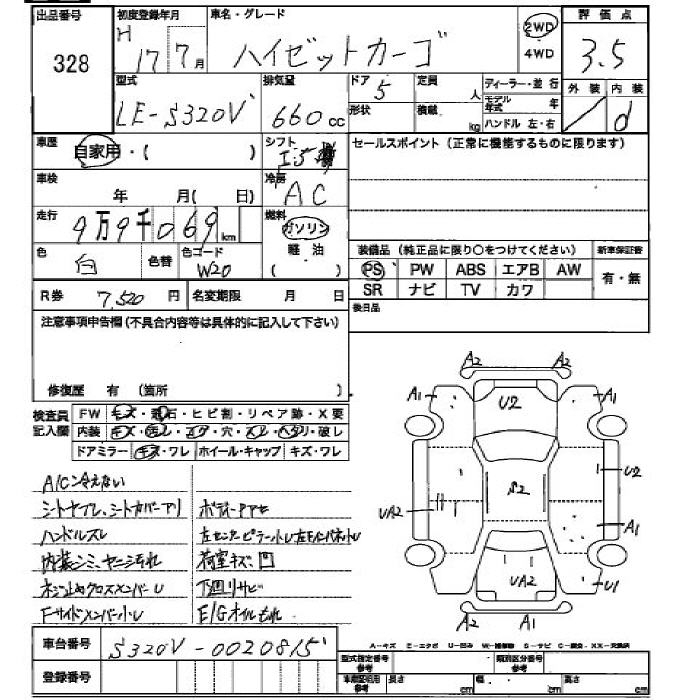 出品番号 初度登録年月 車名・グレード 評価点
328 H 17年7月 ハイゼットカーゴ 2WD 4WD 3.5
型式 排気量 ドア 定員 人 ディーラー・並行 外装 内装
LE-S320V 660cc 5 形状 積載 kg モデル年式 年 ハンドル 左・右 d
車歴 自家用・( ) シフト I.5 セールスポイント(正常に機能するものに限ります)
車検 年 月( 日) 冷房 AC
走行 9万9千069km 燃料 ガソリン 軽油 ( )
色 白 色替 色コード W20
装備品(純正品に限り○をつけてください) 新車保証書
PS PW ABS エアB AW 有・無
SR ナビ TV カワ
R券 7520円 名変期限 月 日 後日品
注意事項申告欄(不具合内容等は具体的に記入して下さい)
修復歴 有 (箇所 )
検査員記入欄 FW キズ・飛石・ヒビ割・リペア跡・X要
内装 キズ・汚レ・コゲ・穴・スレ・ヘタリ・破レ
ドアミラー キズ・ワレ ホイール・キャップ キズ・ワレ
A/C冷えない
シートヤブレ、シートカバーアリ
ハンドルスレ
内装シミ、ヤニ汚れ 荷室キズ、凹
ネジ止めクロスメンバーU 下廻リサビ
FサイドメンバーU E/Gオイルもれ
A2 A2
A1 U2 A1
U2
UA2 S2
A1
UA2 U1
A2 A1
A-キズ E-エクボ U-凹み W-補修跡 S-サビ
車台番号 S320V-0020815
登録番号
型式指定番号 参考 類別区分番号 参考
車庫証明用 参考 長さ cm 幅 cm 高さ cm